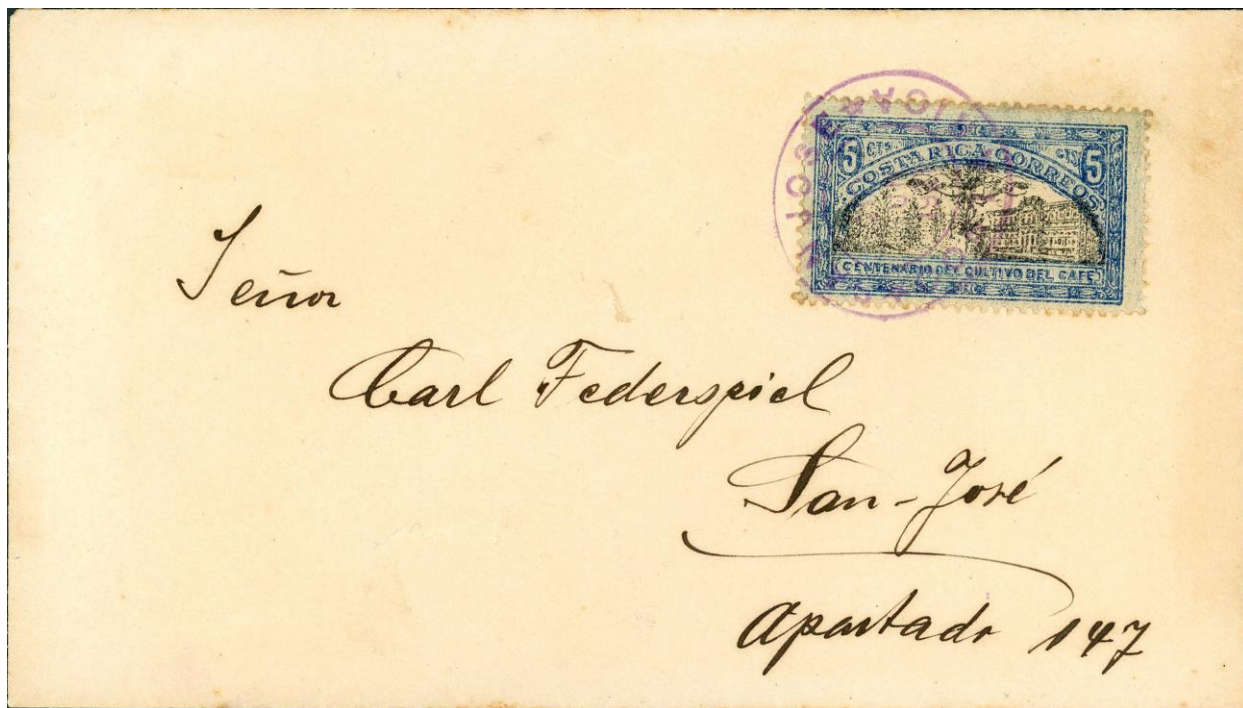 5 CTS CTS 5
COSTA RICA CORREOS
CENTENARIO DEL CULTIVO DEL CAFE
Señor
Carl Federspiel
San-José
Apartado 147